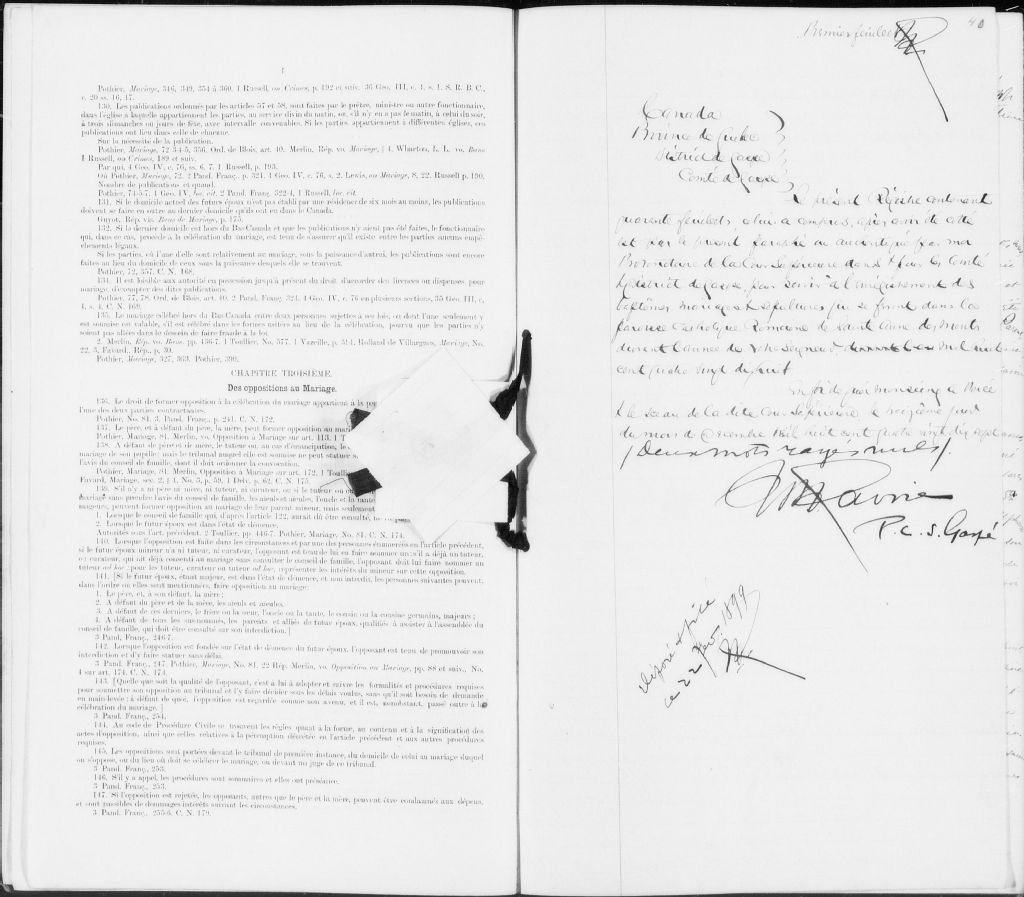 Pothier, Mariage, 346, 349, 354 à 360. 1 Russell, on Crimes, p. 192 et suiv. 36 Geo. III, c. 4, s. 1. S. R. B. C.,
c. 20 ss. 16, 17.
130. Les publications ordonnées par les articles 57 et 58, sont faites par le prêtre, ministre ou autre fonctionnaire,
dans l'église à laquelle appartiennent les parties, au service divin du matin, ou, s'il n'y en a pas le matin, à celui du soir,
à trois dimanches ou jours de fête, avec intervalle convenables. Si les parties appartiennent à différentes églises, ces
publications ont lieu dans celle de chacune.
Sur la nécessité de la publication.
Pothier, Mariage, 72 3-4-5, 356. Ord. de Blois, art. 40. Merlin, Rép. vo. Mariage, § 4. Wharton, L. L. vo. Bans
1 Russell, on Crimes, 189 et suiv.
Par qui, 4 Geo. IV, c. 76, ss. 6, 7. 1 Russell, p. 193.
Où Pothier, Mariage, 72. 2 Pand. Franç. p. 321. 4 Geo. IV, c. 76, s. 2. Lewis, on Mariage, 8, 22. Russell p. 190.
Nombre de publications et quand.
Pothier, 74-5-7. 4 Geo. IV, loc. cit. 2 Pand. Franç. 322-4, 1 Russell, loc. cit.
131. Si le domicile actuel des futurs époux n'est pas établi par une résidence de six mois au moins, les publications
doivent se faire en outre au dernier domicile qu'ils ont eu dans le Canada.
Guyot, Rép. vis. Bans de Mariage, p. 175.
132. Si le dernier domicile est hors du Bas Canada et que les publications n'y aient pas été faites, le fonctionnaire
qui, dans ce cas, procède à la célébration du mariage, est tenu de s'assurer qu'il existe entre les parties aucuns empê-
chements légaux.
Si les parties, ou l'une d'elle sont relativement au mariage, sous la puissance d'autrui, les publications sont encore
faites au lieu du domicile de ceux sous la puissance desquels elle se trouvent.
Pothier, 72, 357. C. N. 168.
134. Il est loisible aux autorités en possession jusqu'à présent du droit d'accorder des licences ou dispenses pour
mariage, d'exempter des dites publications.
Pothier, 77, 78. Ord. de Blois, art. 40. 2 Pand. Franç. 324. 4 Geo. IV, c. 76 en plusieurs sections, 35 Geo. III, c,
4, s, 4, C. N. 169.
135. Le mariage célébré hors du Bas Canada entre deux personnes sujettes à ces lois, ou dont l'une seulement y
est soumise est valable, s'il est célébré dans les formes usitées au lieu de la célébration, pourvu que les parties n'y
soient pas allées dans le dessein de faire fraude à la loi.
2. Merlin, Rép. vo. Bans. pp. 436-7. 1 Toullier, No. 577. 1 Vazeille, p. 514. Rolland de Villargues, Mariage, No,
22. 3, Favard, Rép., p. 30.
Pothier, Mariage, 327, 363. Pothier, 390.
CHAPITRE TROISIÈME.
Des oppositions au Mariage.
136. Le droit de former opposition à la célébration du mariage appartient à la
l'une des deux parties contractantes.
Pothier, No. 81. 3. Pand. Franç., p. 241. C. N. 172.
137. Le père, et à défaut du père, la mère, peut former opposition au
Pothier, Mariage, 81. Merlin, vo. Opposition à Mariage sur art. 113. 1
138. A défaut de père et de mère, le tuteur ou, au cas d'émancipation, le
mariage de son pupille; mais le tribunal auquel elle est soumise ne peut statuer
l'avis du conseil de famille, dont il doit ordonner la convocation.
Pothier, Mariage, 81. Merlin, Opposition à Mariage sur art. 172. 1
Favard, Mariage, sec. 2, § 1, No. 3, p. 59. 1 Delv. p. 62. C. N. 175.
s'il n'y a ni père ni mère, ni tuteur, ni curateur, ou si le tuteur ou
mariage sans prendre l'avis du conseil de famille, les aïeuls et aïeules, l'oncle et la tante
majeurs, peuvent former opposition au mariage de leur parent mineur, mais seulement
1. Lorsque le conseil de famille qui, d'après l'article 122, aurait dû être consulté,
2. Lorsque le futur époux est dans l'état de démence.
Autorités sous l'art. précédent. 2 Toullier, pp 446-7. Pothier, Mariage, No. 81. C. N. 174.
140. Lorsque l'opposition est faite dans les circonstances et par une des personnes énumérées en l'article précédent,
si le futur époux mineur n'a ni tuteur, ni curateur, l'opposant est tenu de lui en faire nommer un; s'il a déjà un tuteur,
et curateur, qui ait déjà consenti au mariage sans consulter le conseil de famille, l'opposant doit lui faire nommer un
tuteur ad hoc; pour les tuteur, curateur ou tuteur ad hoc, représenter les intérêts du mineur sur cette opposition.
141. [Si le futur époux, étant majeur, est dans l'état de démence, et non interdit, les personnes suivantes peuvent,
dans l'ordre où elles sont mentionnées, faire opposition au mariage:
1. Le père, et, à son défaut, la mère;
2. A défaut du père et de la mère, les aïeuls et aïeules.
3. A défaut de ces derniers, le frère ou la sœur, l'oncle ou la tante, le cousin ou la cousine germains, majeurs;
4. A défaut de tous les sus-nommés, les parents et alliés de futur époux, qualifiés à assister à l'assemblée du
conseil de famille, qui doit être consulté sur son interdiction.]
3 Pand. Franç., 246-7.
142. Lorsque l'opposition est fondée sur l'état de démence du futur époux, l'opposant est tenu de promouvoir son
interdiction et d'y faire statuer sans délai.
3 Pand. Franç., 247. Pothier, Mariage, No. 81. 22 Rép. Merlin, vo. Opposition au Mariage, pp. 88 et suiv., No.
4 sur art. 174. C. N. 174.
143. [Quelle que soit la qualité de l'opposant, c'est à lui à adopter et suivre les formalités et procédures requises
pour soumettre son opposition au tribunal et l'y faire décider sous les délais voulus, sans qu'il soit besoin de demande
en main-levée; à défaut de quoi, l'opposition est regardée comme non avenu, et il est, nonobstant, passé outre à la
célébration du mariage.]
3 Pand. Franç., 254.
144. Au code de Procédure Civile se trouvent les règles quant à la forme, au contenu et à la signification des
actes d'opposition, ainsi que celles relatives à la péremption décrétée en l'article précédent et aux autres procédures
requises.
145. Les oppositions sont portées devant le tribunal de première instance, du domicile de celui au mariage duquel
on s'oppose, ou du lieu où doit se célébrer le mariage, ou devant un juge de ce tribunal.
3 Pand. Franç., 253.
146. S'il y a appel, les procédures sont sommaires et elles ont préséance.
3 Pand. Franç., 253.
147. Si l'opposition est rejetée, les opposants, autres que le père et la mère, peuvent être condamnés aux dépens,
et sont passibles de dommages-intérêts suivant les circonstances.
3 Pand. Franç., 255-6. C. N. 179.
Premier feuillet
40
Canada
Province de Québec
District de Gaspé
Comté de Gaspé
Le présent Régistre contenant
quarante feuillets celui-ci compris, après avoir été coté
est par le présent paraphé et authentiqué par moi
Protonotaire de la Cour Supérieure dans & pour le Comté
& district de Gaspé, pour servir à l'enrégistrement des
baptêmes mariages et sépultures qui se feront dans la
paroisse Catholique Romaine de Sainte Anne des Monts
durant l'année de Notre Seigneur mil huit
cent quatre vingt dix huit
En foi de quoi mon seing
& le sceau de la dite Cour Supérieure le treizième jour
du mois de Décembre Mil huit cent quatre vingt dix sept
/ Deux mots rayés nuls /.
P. C. S. Gaspé
Déposé & filé
ce 22 Fév. 1899